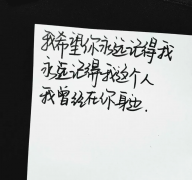 我希望你永远记得我
永远记得我这个人
我曾经在你身边.